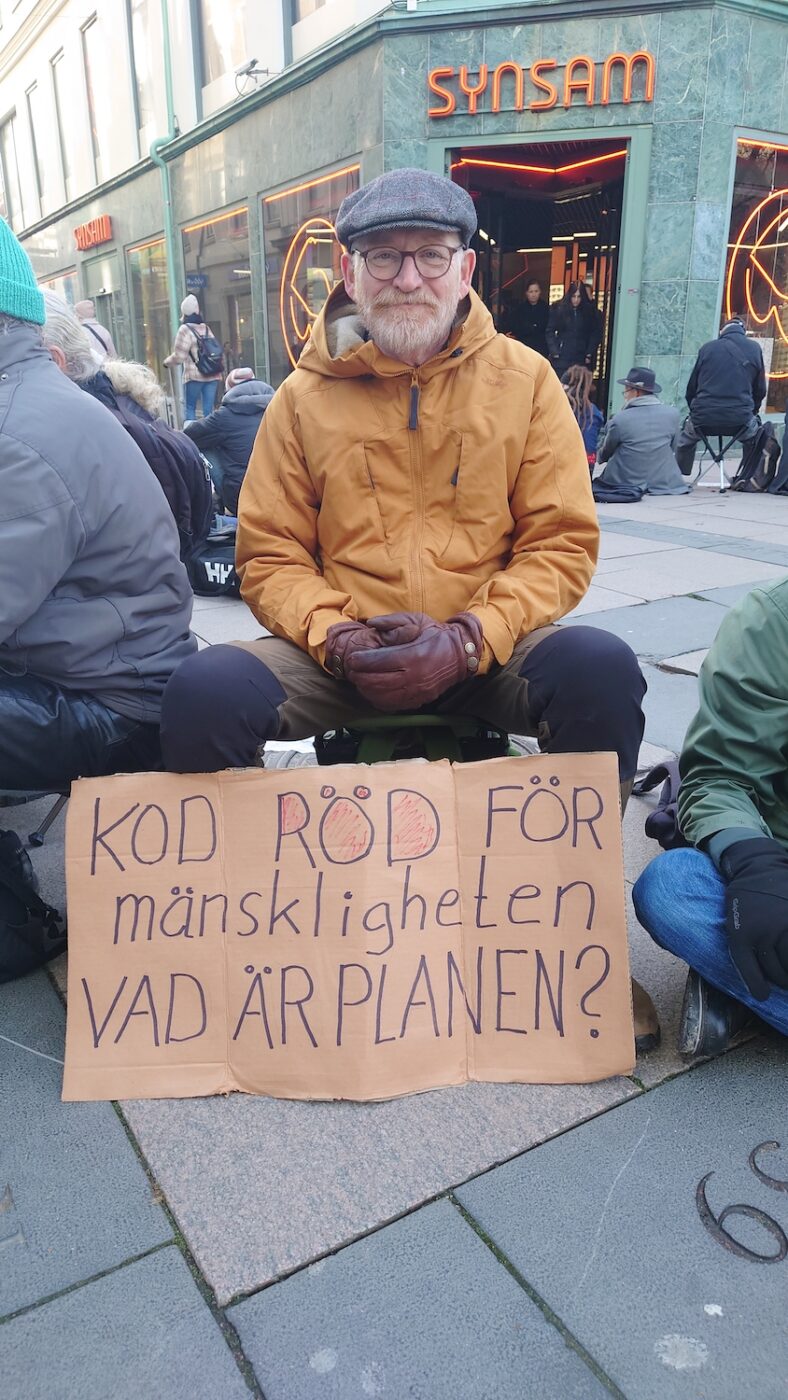 SYNSAM
SYNSAM
HH
KOD RÖD FÖR
mänskligheten
VAD ÄR PLANEN?